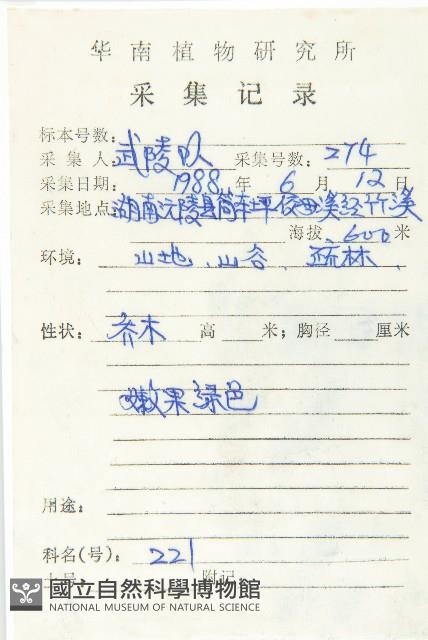 华南植物研究所
采集记录
标本号数：
采集人 武陵队 采集号数：274
采集日期：1988年6月12日
采集地点 湖南沅陵县筒车坪
海拔 600 米
环境：山地、山谷、疏林、
性状：乔木 高 米；胸径 厘米
嫩果绿色
用途：
科名(号)：221
附记
國立自然科學博物館
NATIONAL MUSEUM OF NATURAL SCIENCE